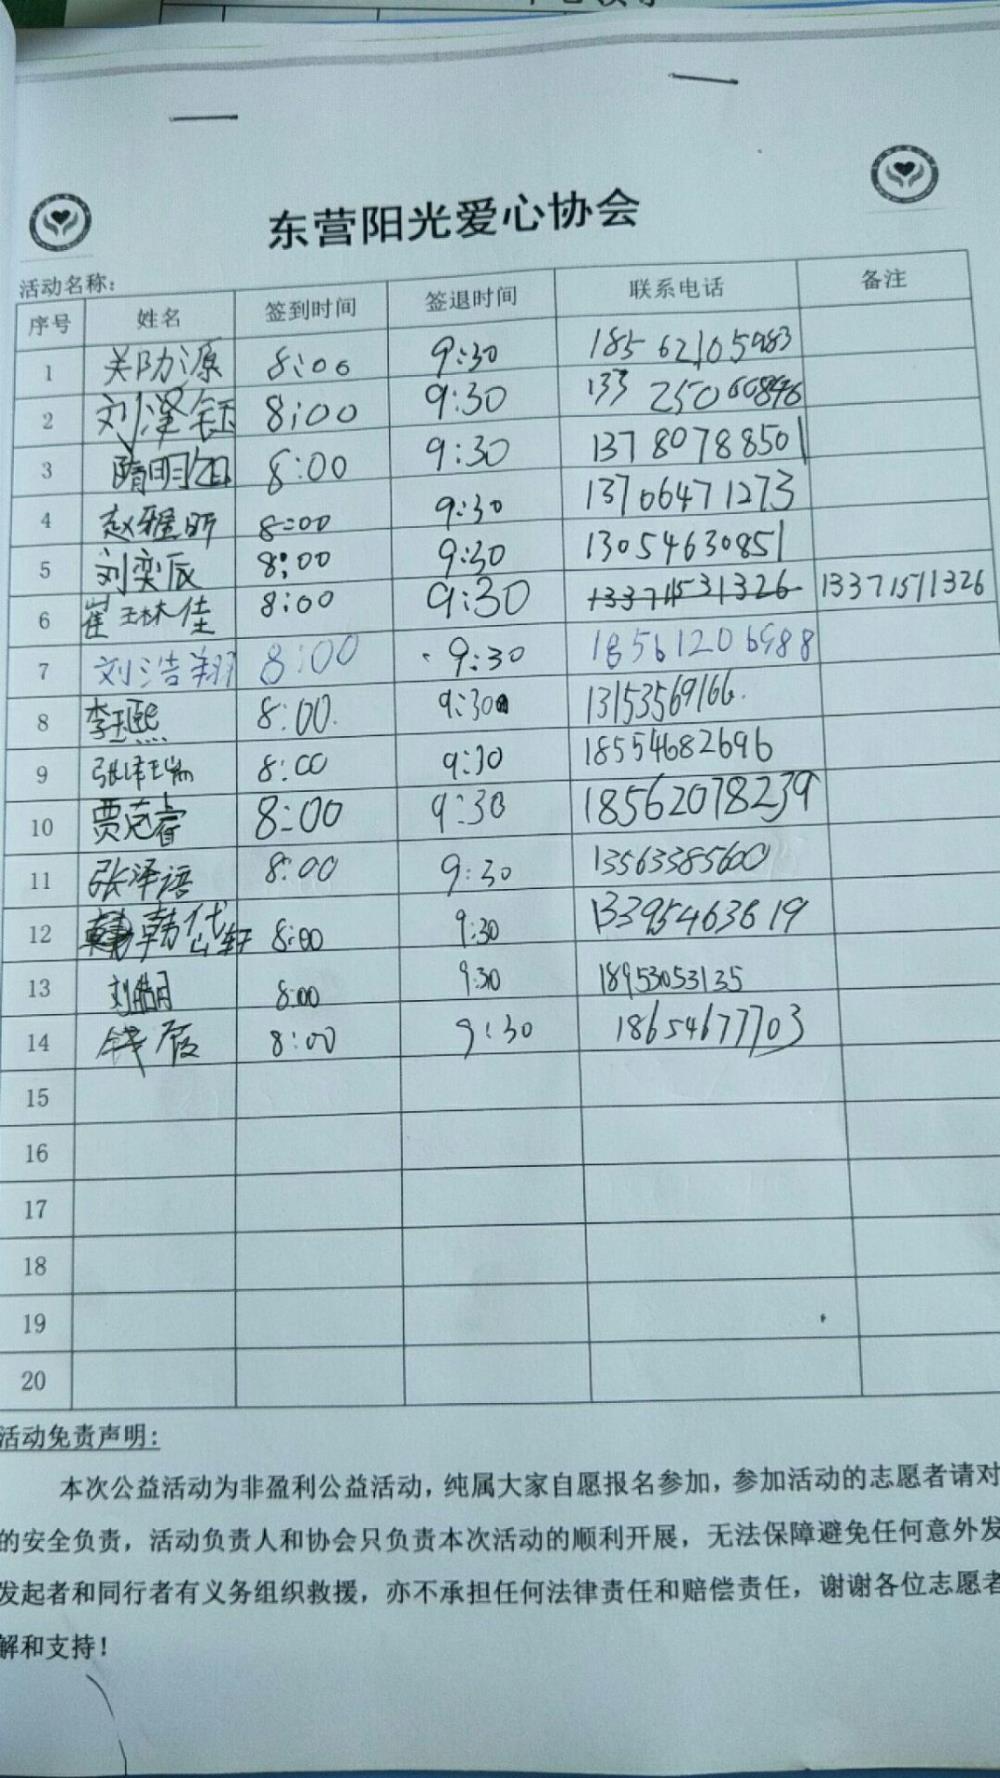 东营阳光爱心协会
活动名称：
序号 姓名 签到时间 签退时间 联系电话 备注
1 8:00 9:30 18562105983
2 刘泽钰 8:00 9:30 133 25060896
3 隋明 8:00 9:30 13780788501
4 赵雅昕 8:00 9:30 13706471273
5 刘奕辰 8:00 9:30 13054630851
6 崔琳佳 8:00 9:30 13371531326 13371511326
7 刘浩翔 8:00 9:30 18561206988
8 李珏熙 8:00. 9:30 13153569166.
9 张泽瑞 8:00 9:30 18554682696
10 贾克睿 8:00 9:30 18562078239
11 张泽语 8:00 9:30 13563385600
12 韩岱轩 8:00 9:30 13395463619
13 刘皓月 8:00 9:30 18953053135
14 钱 8:00 9:30 18654677703
15
16
17
18
19
20
活动免责声明：
本次公益活动为非盈利公益活动，纯属大家自愿报名参加，参加活动的志愿者请对
的安全负责，活动负责人和协会只负责本次活动的顺利开展，无法保障避免任何意外发
发起者和同行者有义务组织救援，亦不承担任何法律责任和赔偿责任，谢谢各位志愿者
解和支持！